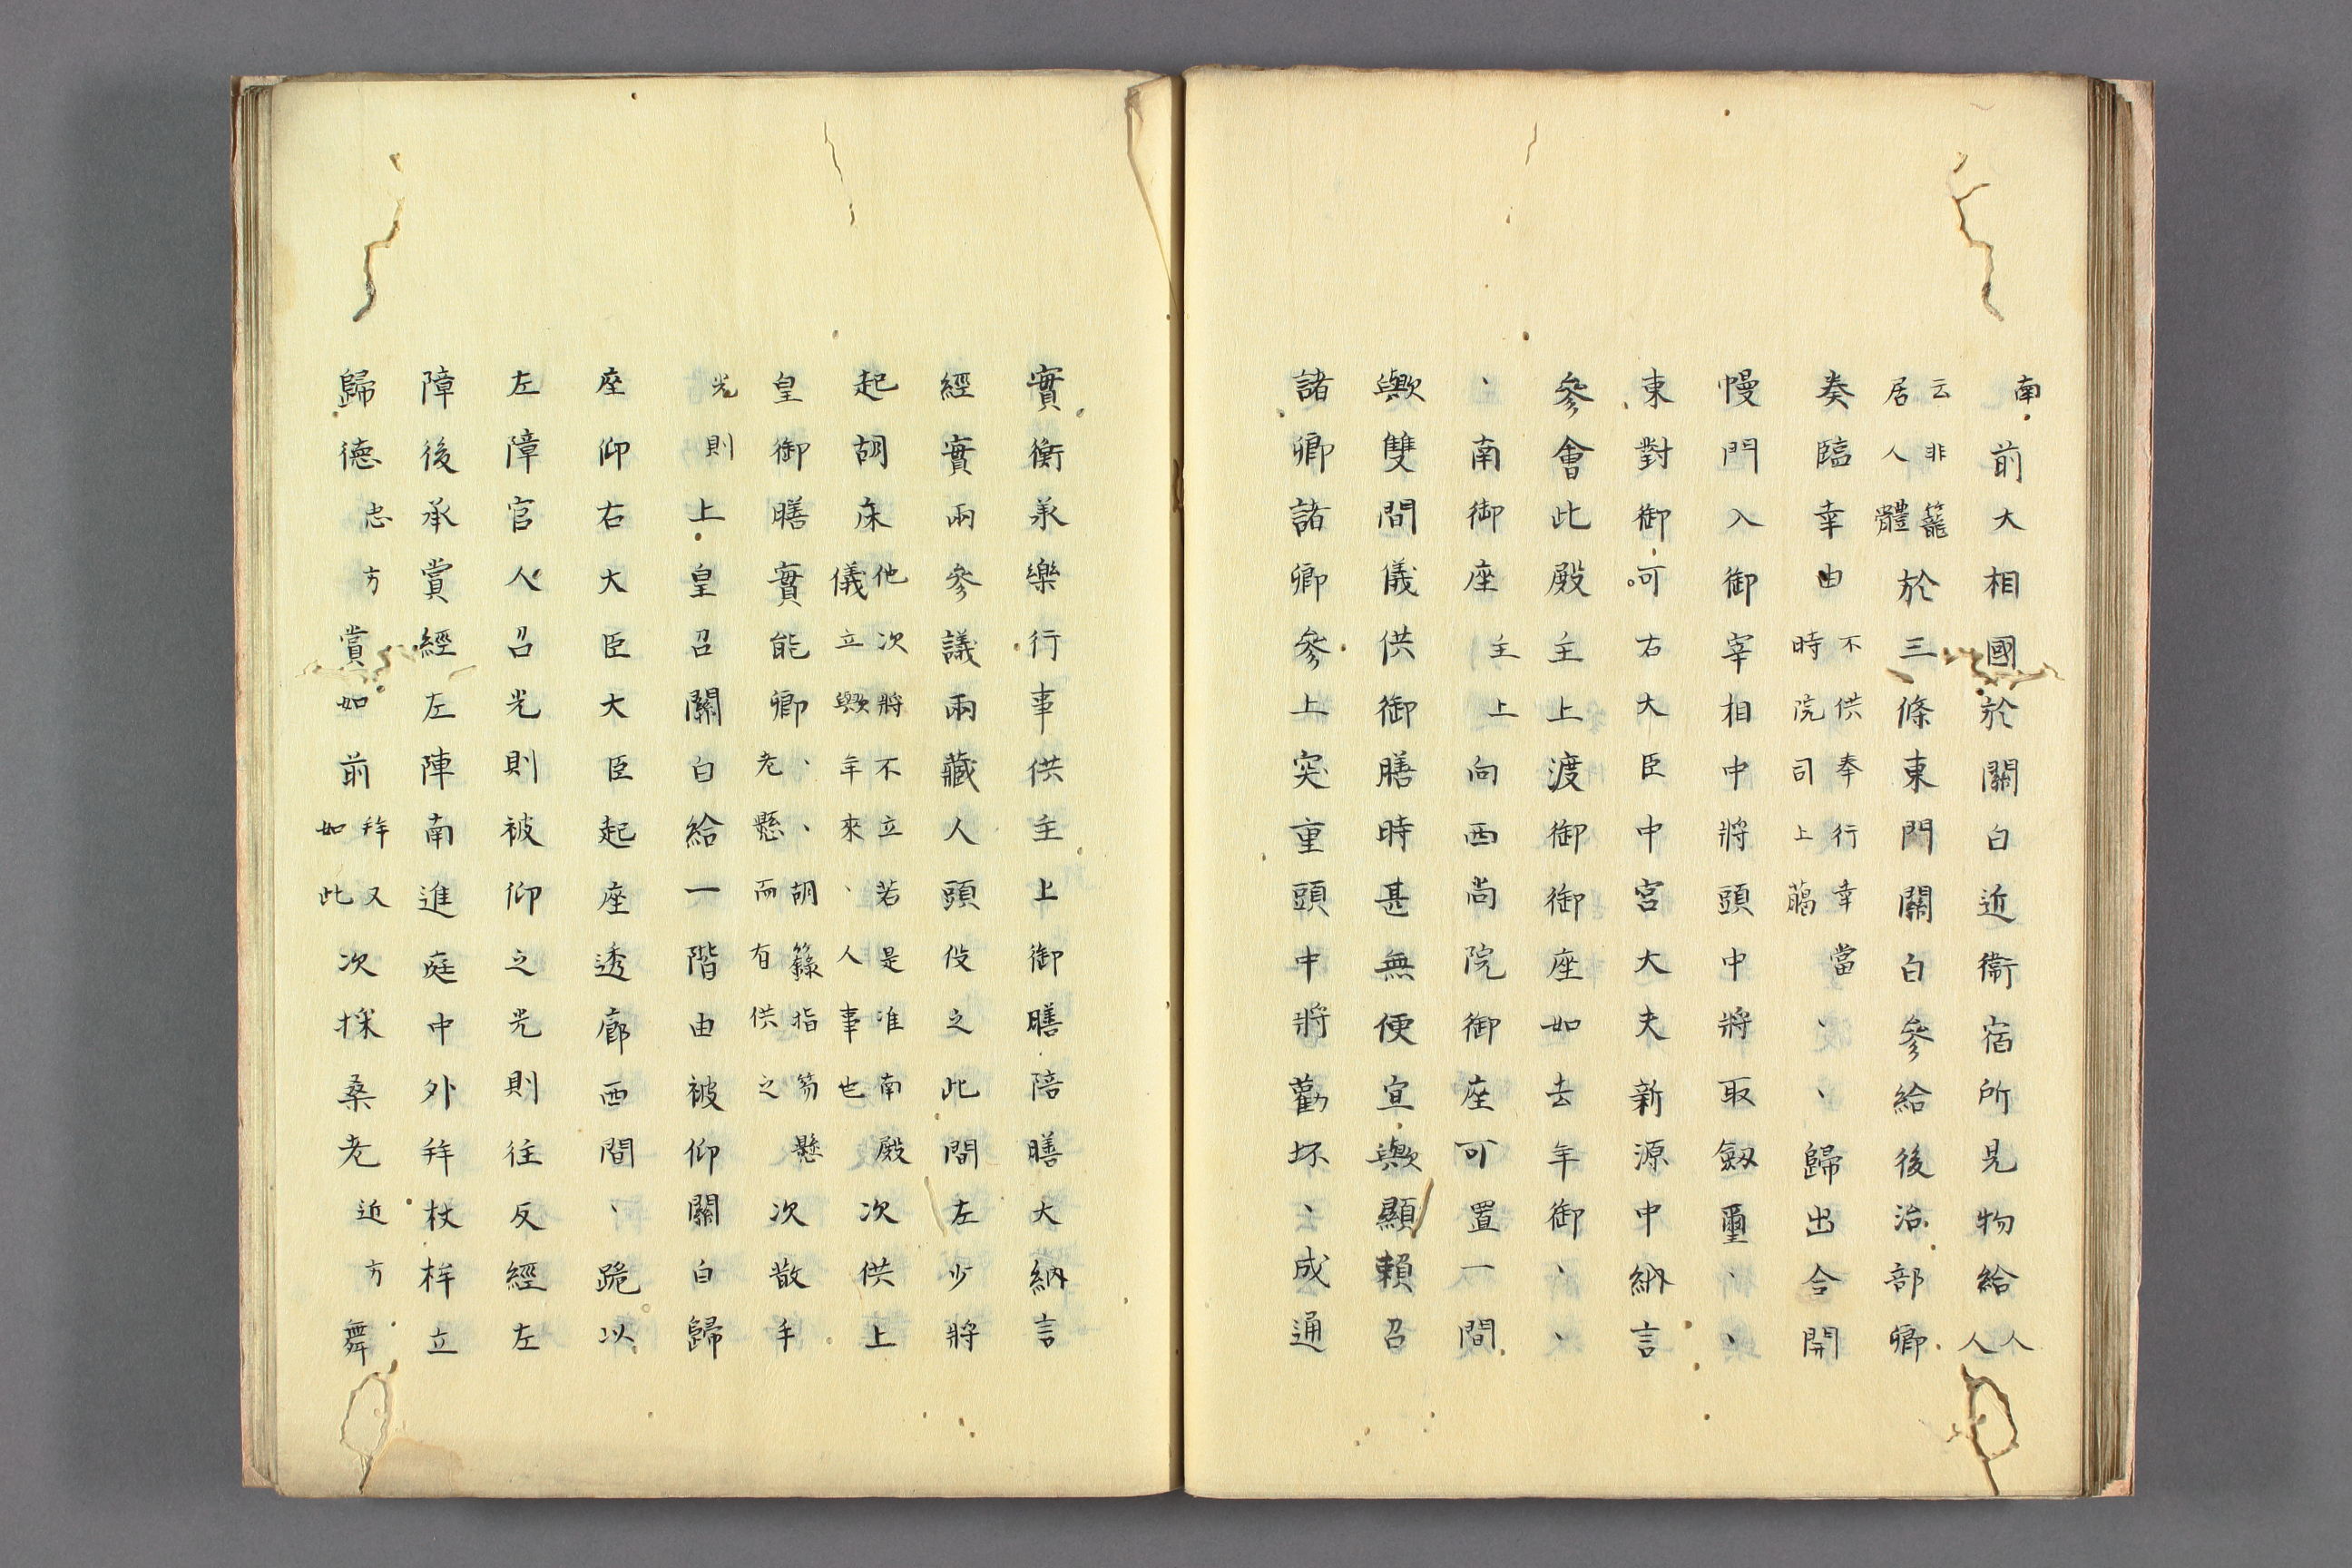 南前大相國於關白近衛宿所見物給人人
云非籠居人體於三條東門關白參給後治部卿
奏臨幸由不供奉行幸當時院司上﨟、、歸出合開
幔門入御宰相中將頭中將取劔璽、、
東對御。可右大臣中宮大夫新源中納言
參會此殿主上渡御御座如去年御、、
、南御座主上向西尚院御座可置一間
歟雙間儀供御膳時甚無便宜歟顯賴召
諸卿諸卿參上突重頭中將勸坏、成通
實衡羕樂行事供主上御膳陪膳大納言
經實兩參議兩藏人頭伇之此間左少將
起胡床他次將不立若是准南殿儀立歟年來、人事也次供上
皇御膳實能卿、、胡籙指笏懸老懸而有供之次散手
光則上皇召關白給一階由被仰關白歸
座仰右大臣大臣起座透廊西間、跪以
左障官人召光則被仰之光則往反經左
障後承賞經左陣南進庭中外拜杖桙立
歸德忠方賞如前拜又如此次採桑老近方舞